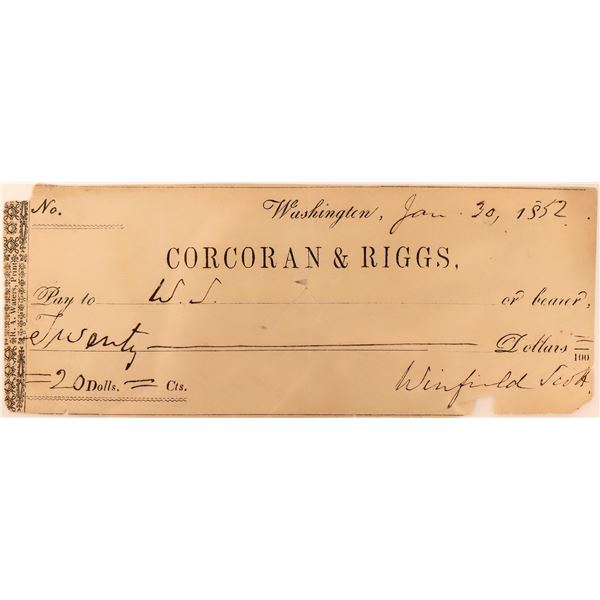 No. Washington, Jan. 30, 1852.
CORCORAN & RIGGS,
Pay to W. S. or bearer,
Twenty Dollars 100
=20 Dolls. = Cts. Winfield Scott
R. A. Waters, Print.